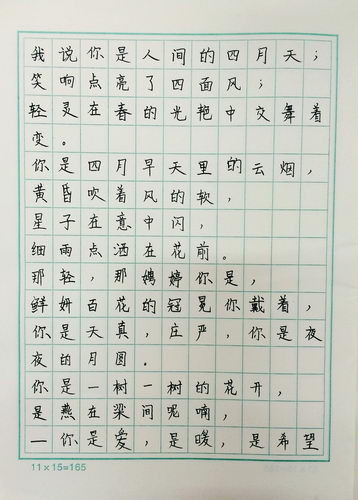 我说你是人间的四月天；
笑响点亮了四面风；
轻灵在春的光艳中交舞着
变。
你是四月早天里的云烟，
黄昏吹着风的软，
星子在意中闪，
细雨点洒在花前。
那轻，那娉婷你是，
鲜妍百花的冠冕你戴着，
你是天真，庄严，你是夜
夜的月圆。
你是一树一树的花开，
是燕在梁间呢喃，
—你是爱，是暖，是希望
11×15=165